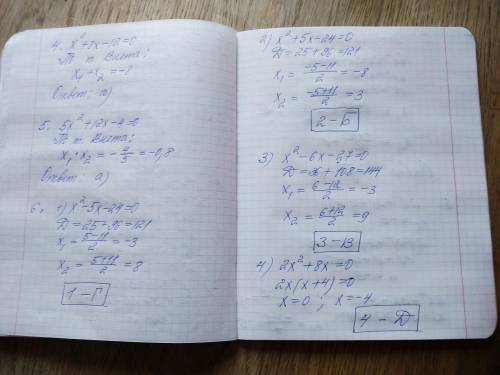 4. x²+8x-12=0
По т. Виета:
x₁-x₂=-8
Ответ: а)
5. 5x²+12x-4=0
По т. Виета:
x₁·x₂ = -4/5 = -0,8
Ответ: а)
6. 1) x²-5x-24=0
D=25+96=121
x₁=(5-11)/2=-3
x₂=(5+11)/2=8
1-Г
2) x²+5x-24=0
D=25+96=121
x₁=(-5-11)/2=-8
x₂=(-5+11)/2=3
2-Б
3) x²-6x-27=0
D=36+108=144
x₁=(6-12)/2=-3
x₂=(6+12)/2=9
3-В
4) 2x²+8x=0
2x(x+4)=0
x=0; x=-4
4-Д